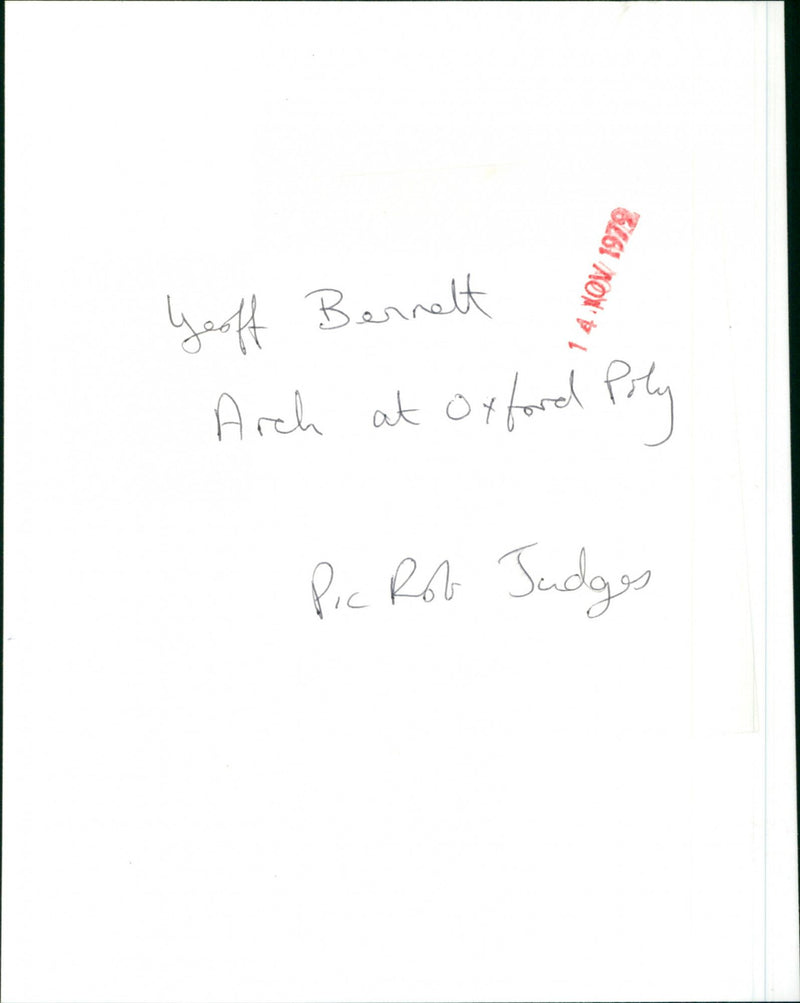 14 NOV 1979
Geoff Bennett
Arch at Oxford Poly
Pic Rob Judges